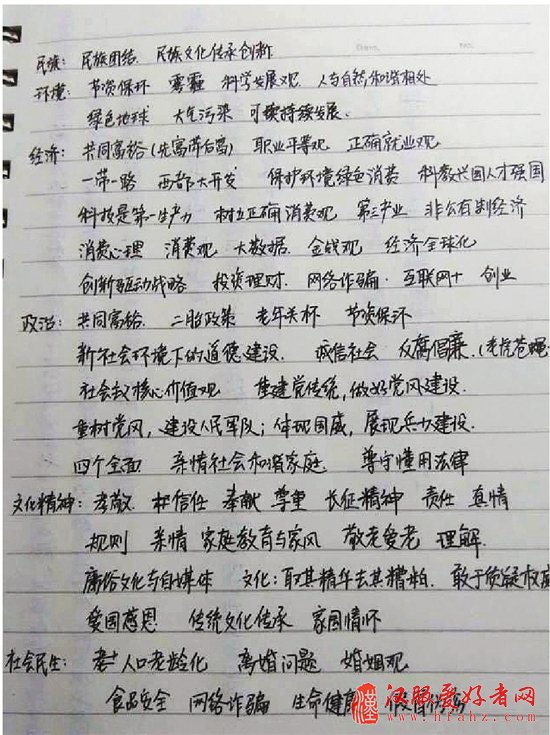 民族: 民族团结. 民族文化传承创新
环境: 节资保环 雾霾 科学发展观. 人与自然和谐相处
绿色地球 大气污染 可续持续发展.
经济: 共同富裕(先富带后富) 职业平等观 正确就业观
一带一路 西部大开发 保护环境绿色消费 科教兴国人才强国
科技是第一生产力 树立正确消费观 第三产业 非公有制经济
消费心理 消费观 大数据. 金钱观 经济全球化
创新驱动战略 投资理财. 网络诈骗. 互联网+ 创业
政治: 共同富裕. 二胎政策 老年关怀 节资保环
新社会环境下的道德建设. 诚信社会 反腐倡廉.(老虎苍蝇
社会主义核心价值观 重建党传统,做好党风建设.
重树党风,建设人民军队;体现国威,展现兵力建设.
四个全面 亲情社会和谐家庭. 尊守懂用法律
文化精神: 孝敬. 信任 奉献 尊重 长征精神 责任 真情
规则 亲情 家庭教育与家风 敬老爱老 理解.
庸俗文化与自媒体 文化:取其精华去其糟粕. 敢于质疑权威
爱国感恩 传统文化传承 家国情怀
社会民生: 人口老龄化 离婚问题 婚姻观
食品安全 网络诈骗 生命健康
汉服爱好者网
www.hfahz.com